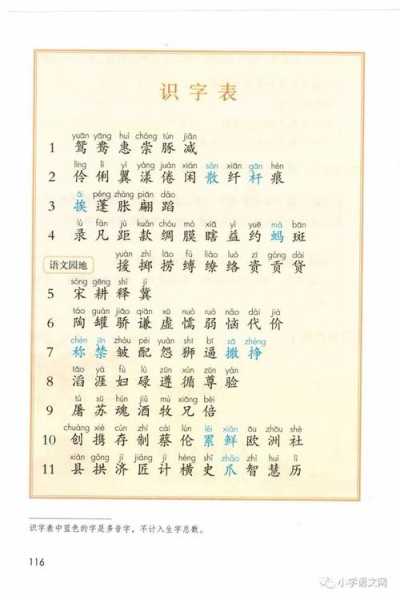 识字表
yuān yāng huì chóng tún jiǎn
1 鸳 鸯 惠 崇 豚 减
líng lì yì yàng juàn xián sǎn xiān gān hén
2 伶 俐 翼 漾 倦 闲 散 纤 杆 痕
ái péng zhàng piān dǎo
3 挨 蓬 胀 翩 蹈
lù fán jù kuǎn chóu mó xiā yì yuē mǎ bān
4 录 凡 距 款 绸 膜 瞎 益 约 蚂 斑
yuán zhì lāo fù liáo luò zī gòng dài
语文园地 援 掷 捞 缚 缭 络 资 贡 贷
sòng gēng shì jì
5 宋 耕 释 冀
táo guàn jiāo qiān xū nuò ruò nǎo dài jià
6 陶 罐 骄 谦 虚 懦 弱 恼 代 价
chèn jīn zhòu pèi yuàn shī bī sā zhēng
7 称 禁 皱 配 怨 狮 逼 撒 挣
tāo yá fù lù zūn xún zūn yàn
8 滔 涯 妇 碌 遵 循 尊 验
tú sū hún jiǔ mù xiōng bèi
9 屠 苏 魂 酒 牧 兄 倍
chuàng xié cún zhì cài lún lěi xiǎn ōu zhōu shè
10 创 携 存 制 蔡 伦 累 鲜 欧 洲 社
xiàn gǒng jì jiàng jì héng shǐ zhǎo zhì huì lì
11 县 拱 济 匠 计 横 史 爪 智 慧 历
识字表中蓝色的字是多音字，不计入生字总数。
116
小学语文网